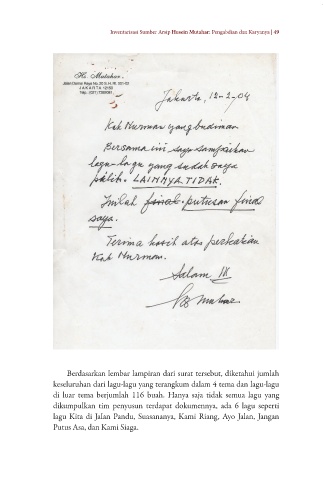 Inventarisasi Sumber Arsip Husein Mutahar: Pengabdian dan Karyanya | 49
H. Mutahar.
JAKARTA 12150
Jakarta, 12-2-04
Kak Nurman yang budiman.
Bersama ini saya sampaikan
lagu-lagu yang sudah saya
pilih. LAINNYA TIDAK.
Inilah final putusan final
saya.
Terima kasih atas perhatian
Kak Nurman.
Salam
H Mutahar.
Berdasarkan lembar lampiran dari surat tersebut, diketahui jumlah
keseluruhan dari lagu-lagu yang terangkum dalam 4 tema dan lagu-lagu
di luar tema berjumlah 116 buah. Hanya saja tidak semua lagu yang
dikumpulkan tim penyusun terdapat dokumennya, ada 6 lagu seperti
lagu Kita di Jalan Pandu, Suasananya, Kami Riang, Ayo Jalan, Jangan
Putus Asa, dan Kami Siaga.